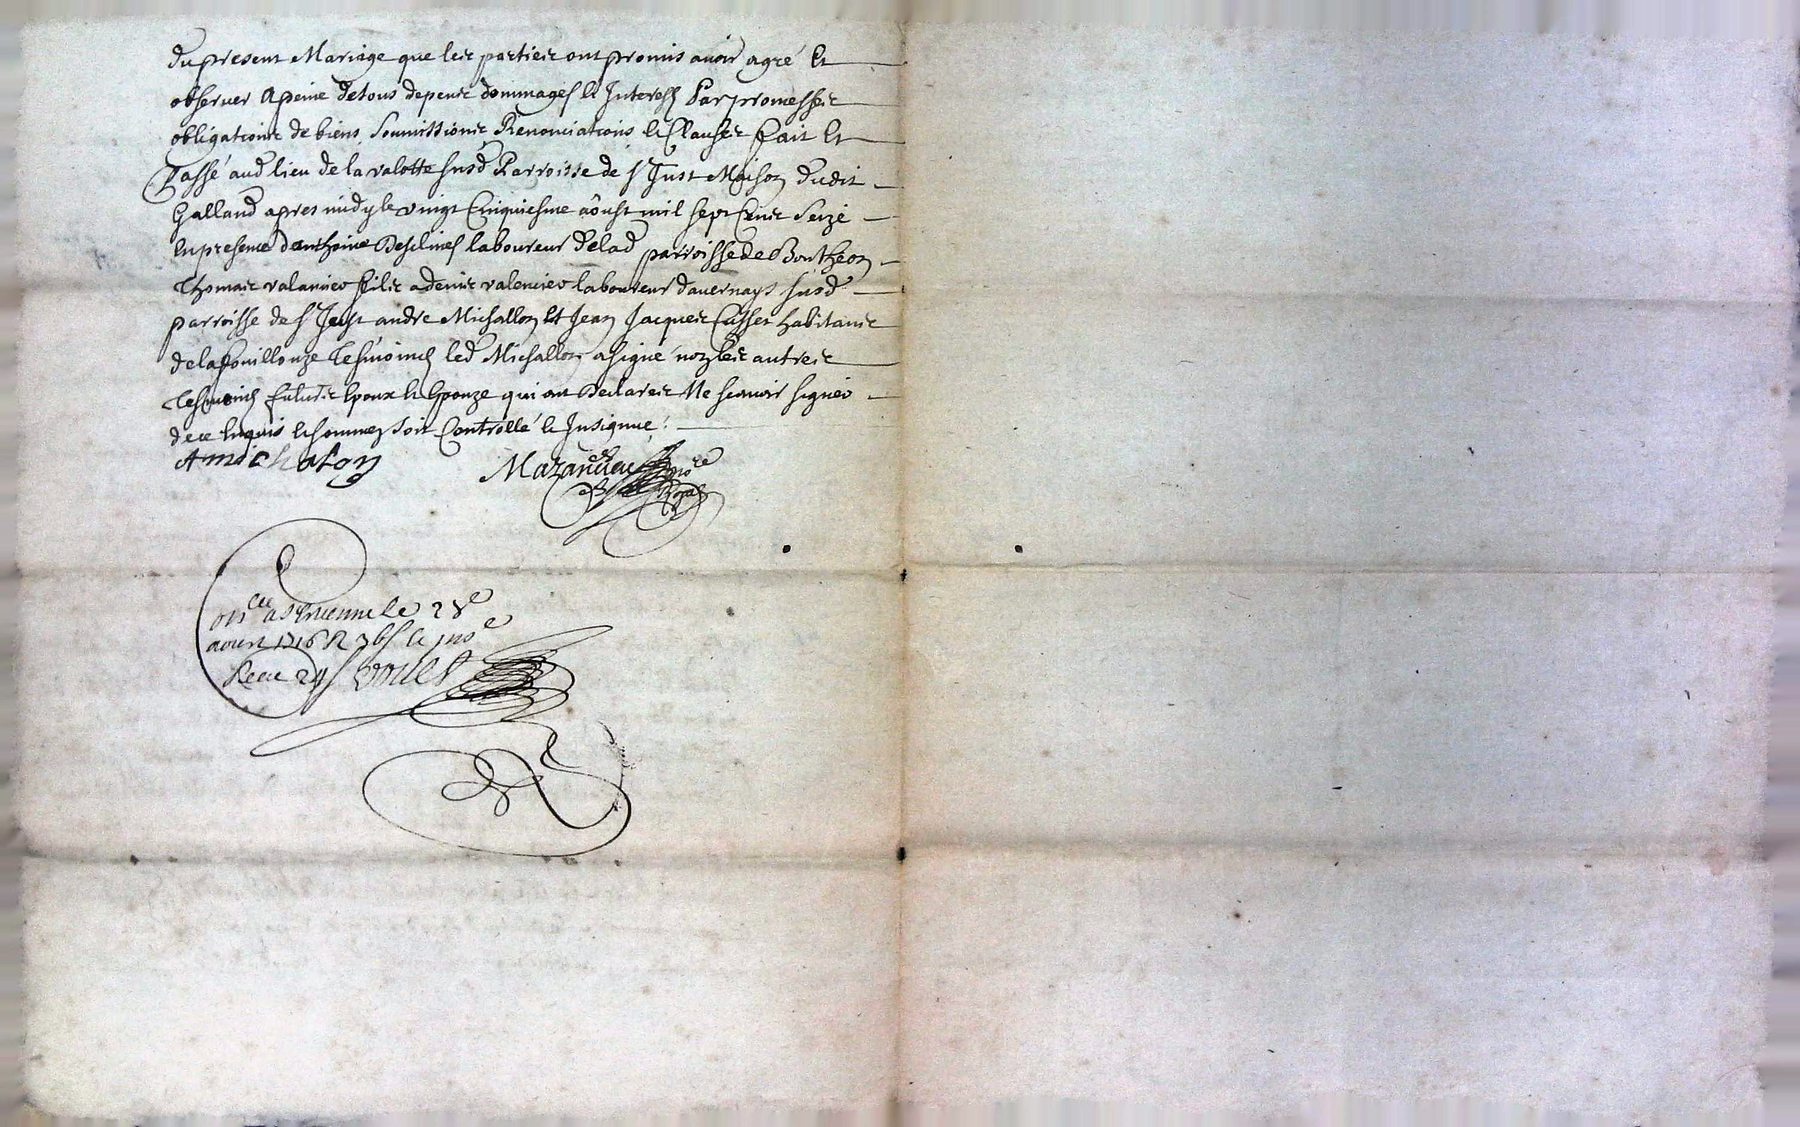 du present Mariage que les parties ont promis avoir agré et
observer a peine de tous depens dommages et Interest Par promesses
obligations de biens Soumissions Renonciations et Clauses fait et
Passé aud lieu de la valotte susd Parroisse de st Just Maison dudit
Galland apres midy le vingt Cinquiesme aôust mil sept Cents Seize
En presence d'anthoine Desclines laboureur de lad parroisse de Bontheon
Thomas valancier fils a denis valencier laboureur d'avernays susd
parroisse de st Just andre Michallon et Jean Jacques Cusset habitants
de lafouillouze Tesmoins led Michallon a signé non les autres
Tesmoins futurs Epoux et Epouze qui ont Declarés Ne scavoir signer
de ce Enquis et sommez soit Controllé et Insignué .
A michalon
Mazandieu no.re
Royal
Con.lle a St Etienne le 28e
aoust 1716 R
Receu 24s